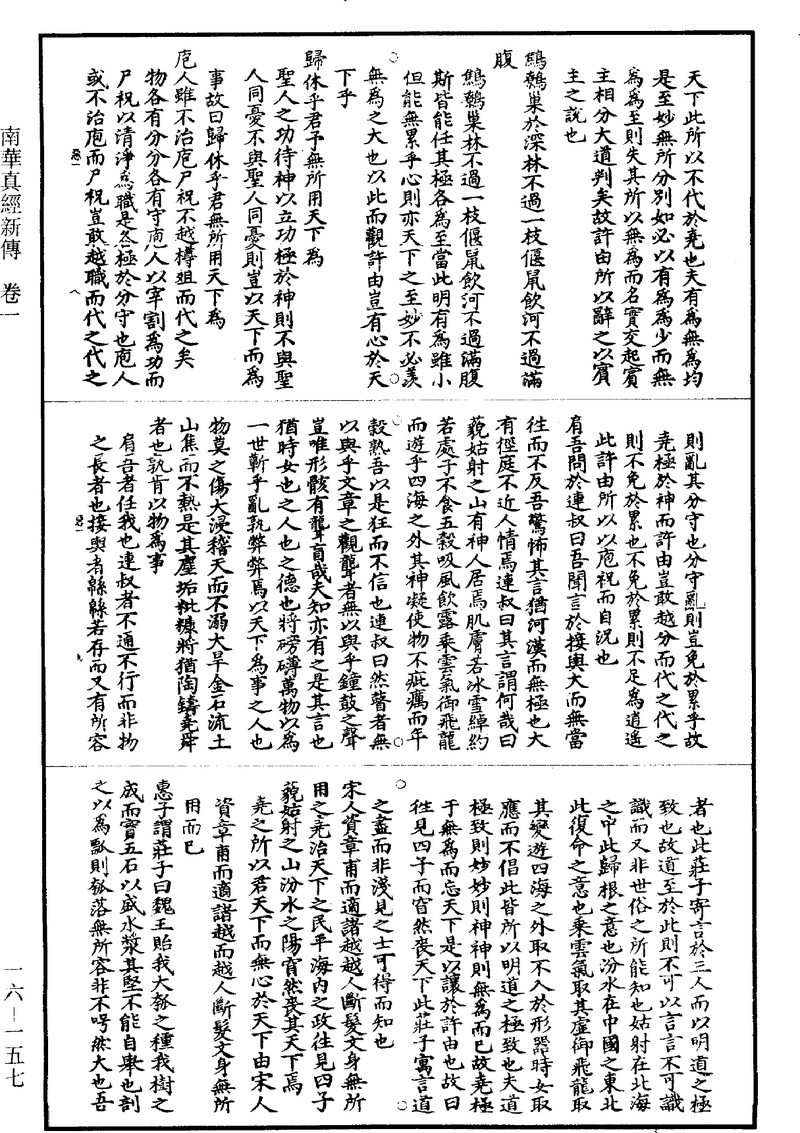 南華真經新傳　卷一
一六—一五七
天下此所以不代於堯也夫有為無為均
是至妙無所分別如必以有為為少而無
為為至則失其所以無為而名實交起賓
主相分大道判矣故許由所以辭之以賓
主之說也
鷦鷯巢於深林不過一枝偃鼠飲河不過滿
腹
鷦鷯巢林不過一枝偃鼠飲河不過滿腹
斯皆能任其極各為至當此明有為雖小
但能無累乎心則亦天下之至妙不必羨
無為之大也以此而觀許由豈有心於天
下乎
歸休乎君予無所用天下為
聖人之功待神以立功極於神則不與聖
人同憂不與聖人同憂則豈以天下而為
事故曰歸休乎君無所用天下為
庖人雖不治庖尸祝不越樽俎而代之矣
物各有分分各有守庖人以宰割為功而
尸祝以清淨為職是各極於分守也庖人
或不治庖而尸祝豈敢越職而代之代之
則亂其分守也分守亂則豈免於累乎故
堯極於神而許由豈敢越分而代之代之
則不免於累也不免於累則不足為逍遙
此許由所以以庖祝而自況也
肩吾問於連叔曰吾聞言於接輿大而無當
往而不反吾驚怖其言猶河漢而無極也大
有徑庭不近人情焉連叔曰其言謂何哉曰
藐姑射之山有神人居焉肌膚若冰雪綽約
若處子不食五穀吸風飲露乘雲氣御飛龍
而遊乎四海之外其神凝使物不疵癘而年
穀熟吾以是狂而不信也連叔曰然瞽者無
以與乎文章之觀聾者無以與乎鐘鼓之聲
豈唯形骸有聾盲哉夫知亦有之是其言也
猶時女也之人也之德也將磅礡萬物以為
一世蘄乎亂孰弊弊焉以天下為事之人也
物莫之傷大浸稽天而不溺大旱金石流土
山焦而不熱是其塵垢粃糠將猶陶鑄堯舜
者也孰肯以物為事
肩吾者任我也連叔者不通不行而非物
之長者也接輿者緜緜若存而又有所容
者也此莊子寄言於三人而以明道之極
致也故道至於此則不可以言言不可識
識而又非世俗之所能知也姑射在北海
之中此歸根之意也汾水在中國之東北
此復命之意也乘雲氣取其虛御飛龍取
其變遊四海之外取不入於形器時女取
應而不倡此皆所以明道之極致也夫道
極致則妙妙則神神則無為而已故堯極
于無為而忘天下是以讓於許由也故曰
往見四子而窅然喪天下此莊子寓言道
之盡而非淺見之士可得而知也
宋人資章甫而適諸越越人斷髮文身無所
用之堯治天下之民平海內之政往見四子
藐姑射之山汾水之陽窅然喪其天下焉
堯之所以君天下而無心於天下由宋人
資章甫而適諸越而越人斷髮文身無所
用而已
惠子謂莊子曰魏王貽我大瓠之種我樹之
成而實五石以盛水漿其堅不能自舉也剖
之以為瓢則瓠落無所容非不呺然大也吾